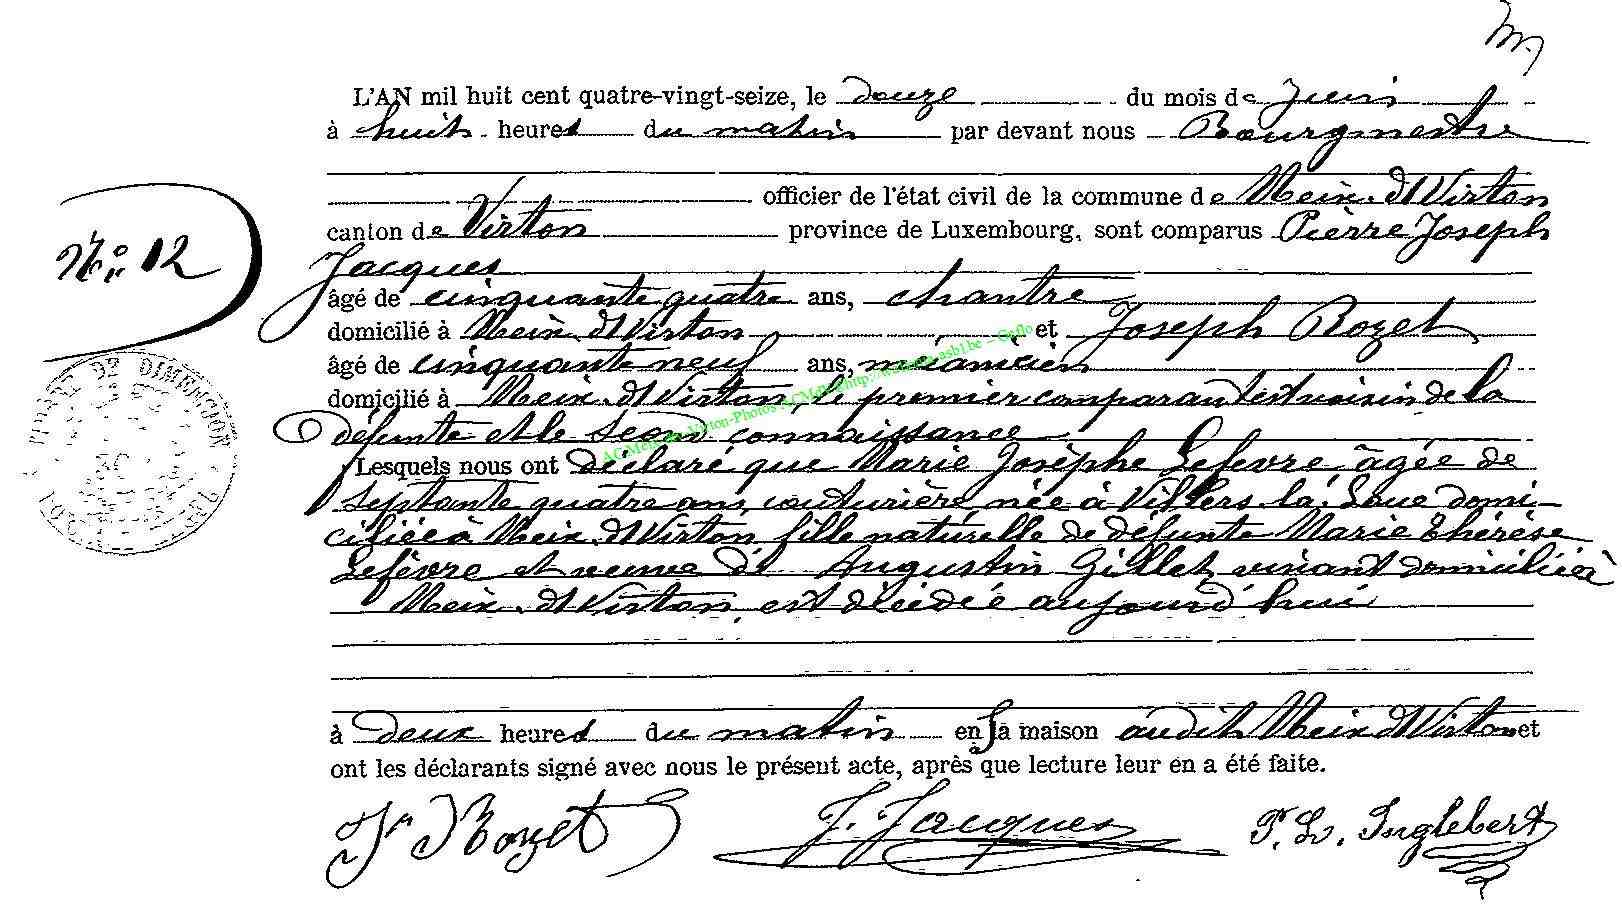 L'AN mil huit cent quatre-vingt-seize, le douze du mois de Juin
à huit heures du matin par devant nous Bourgmestre
officier de l'état civil de la commune de Meix-dt-Virton
N° 12
canton de Virton province de Luxembourg, sont comparus Pièrre Joseph
Jacques
âgé de cinquante quatre ans, chantre
domicilié à Meix-dt-Virton et Joseph Rozet
âgé de cinquante neuf ans, mécanicien
domicilié à Meix-dt-Virton, le premier comparant est voisin de la
défunte et le second connaissance
Lesquels nous ont déclaré que Marie Josèphe Lefèvre âgée de
septante quatre ans, couturière, née à Villers-la-Loue domi-
ciliée à Meix-dt-Virton, fille naturelle de défunte Marie Thérèse
Lefèvre et veuve de Augustin Gillet, vivant domicilié à
Meix-dt-Virton, est décédée aujourd'hui
à deux heures du matin en sa maison audit Meix dt Virton et
ont les déclarants signé avec nous le présent acte, après que lecture leur en a été faite.
Jh Rozet J. Jacques P. L. Inglebert
TIMBRE DE DIMENSION